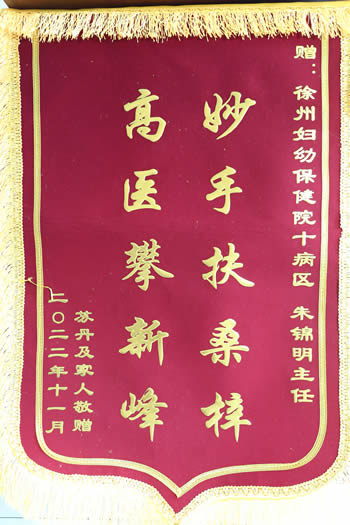 赠：徐州妇幼保健院十病区 朱锦明主任
妙手扶桑梓
高医攀新峰
苏丹及家人敬赠
二〇二二年十一月